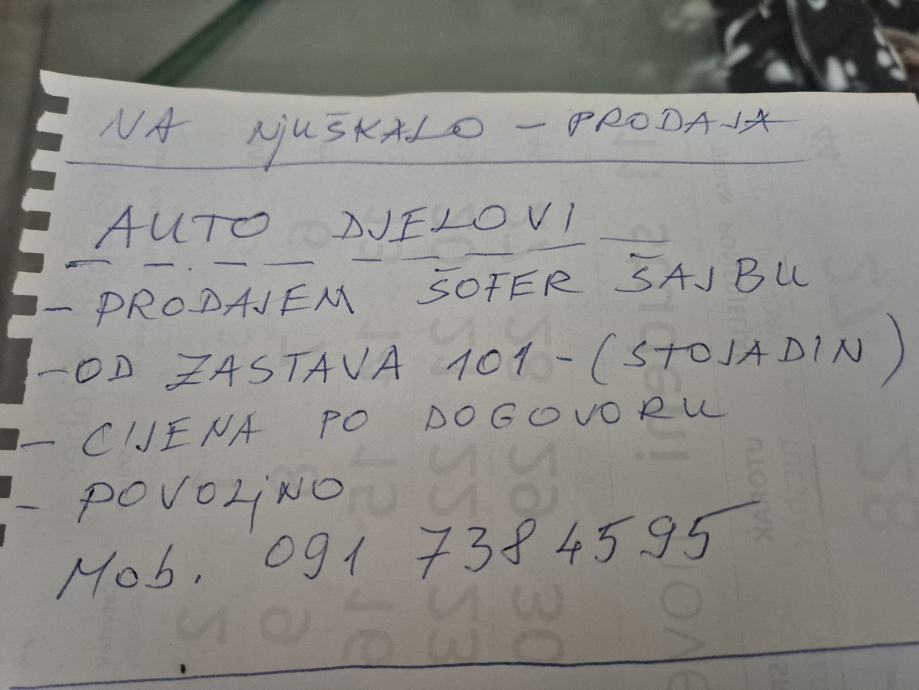 NA NJUŠKALO - PRODAJA
AUTO DJELOVI
- PRODAJEM ŠOFER ŠAJBU
- OD ZASTAVA 101 - (STOJADIN)
- CIJENA PO DOGOVORU
- POVOLJNO
Mob. 091 7384595